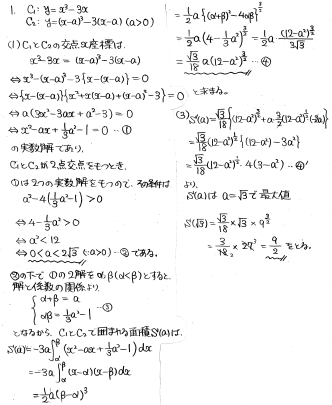 1. C₁: y=x³-3x
C₂: y=(x-a)³-3(x-a) (a>0)
(1) C₁とC₂の交点のx座標は.
x³-3x=(x-a)³-3(x-a)
⇔ x³-(x-a)³-3{x-(x-a)}=0
⇔ {x-(x-a)}{x²+x(x-a)+(x-a)²-3}=0
⇔ a(3x²-3ax+a²-3)=0
⇔ x²-ax+1/3a²-1=0 …①
の実数解であり、
C₁とC₂が2点交点をもつとき、
①は2つの実数解をもつので、その条件は
a²-4(1/3a²-1)>0
⇔ 4-1/3a²>0
⇔ a²<12
⇔ 0<a<2√3 (∵a>0) …② である。
②の下で ①の2解をα,β(α<β)とすると、
解と係数の関係より
{ α+β=a
αβ=1/3a²-1 …③
となるから、C₁とC₂で囲まれる面積S(a)は、
S(a)=-3a∫_α^β(x²-ax+1/3a²-1)dx
=-3a∫_α^β(x-α)(x-β)dx
=1/2a(β-α)³
=1/2a{(α+β)²-4αβ}^{3/2}
=1/2a(4-1/3a²)^{3/2}=1/2a・(12-a²)^{3/2}/3√3
=√3/18 a(12-a²)^{3/2} …④
と求まる。
(3) S'(a)=√3/18{(12-a²)^{3/2}+a・3/2(12-a²)^{1/2}(-2a)}
=√3/18(12-a²)^{1/2}{(12-a²)-3a²}
=√3/18(12-a²)^{1/2}・4(3-a²) …④'
より、
S(a)は a=√3で最大値
S(√3)=√3/18×√3×9^{3/2}
=3/18×27=9/2 をとる。